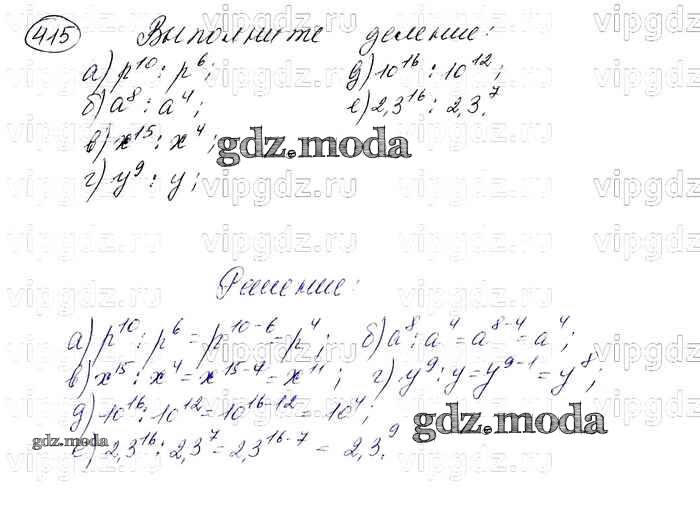 415 Выполните деление:
а) p^10 : p^6; д) 10^16 : 10^12;
б) a^8 : a^4; е) 2,3^16 : 2,3^7.
в) x^15 : x^4;
г) y^9 : y;
gdz.moda
Решение:
а) p^10 : p^6 = p^10-6 = p^4; б) a^8 : a^4 = a^8-4 = a^4;
в) x^15 : x^4 = x^15-4 = x^11; г) y^9 : y = y^9-1 = y^8;
д) 10^16 : 10^12 = 10^16-12 = 10^4;
gdz.moda
е) 2,3^16 : 2,3^7 = 2,3^16-7 = 2,3^9.
gdz.moda
vipgdz.ru